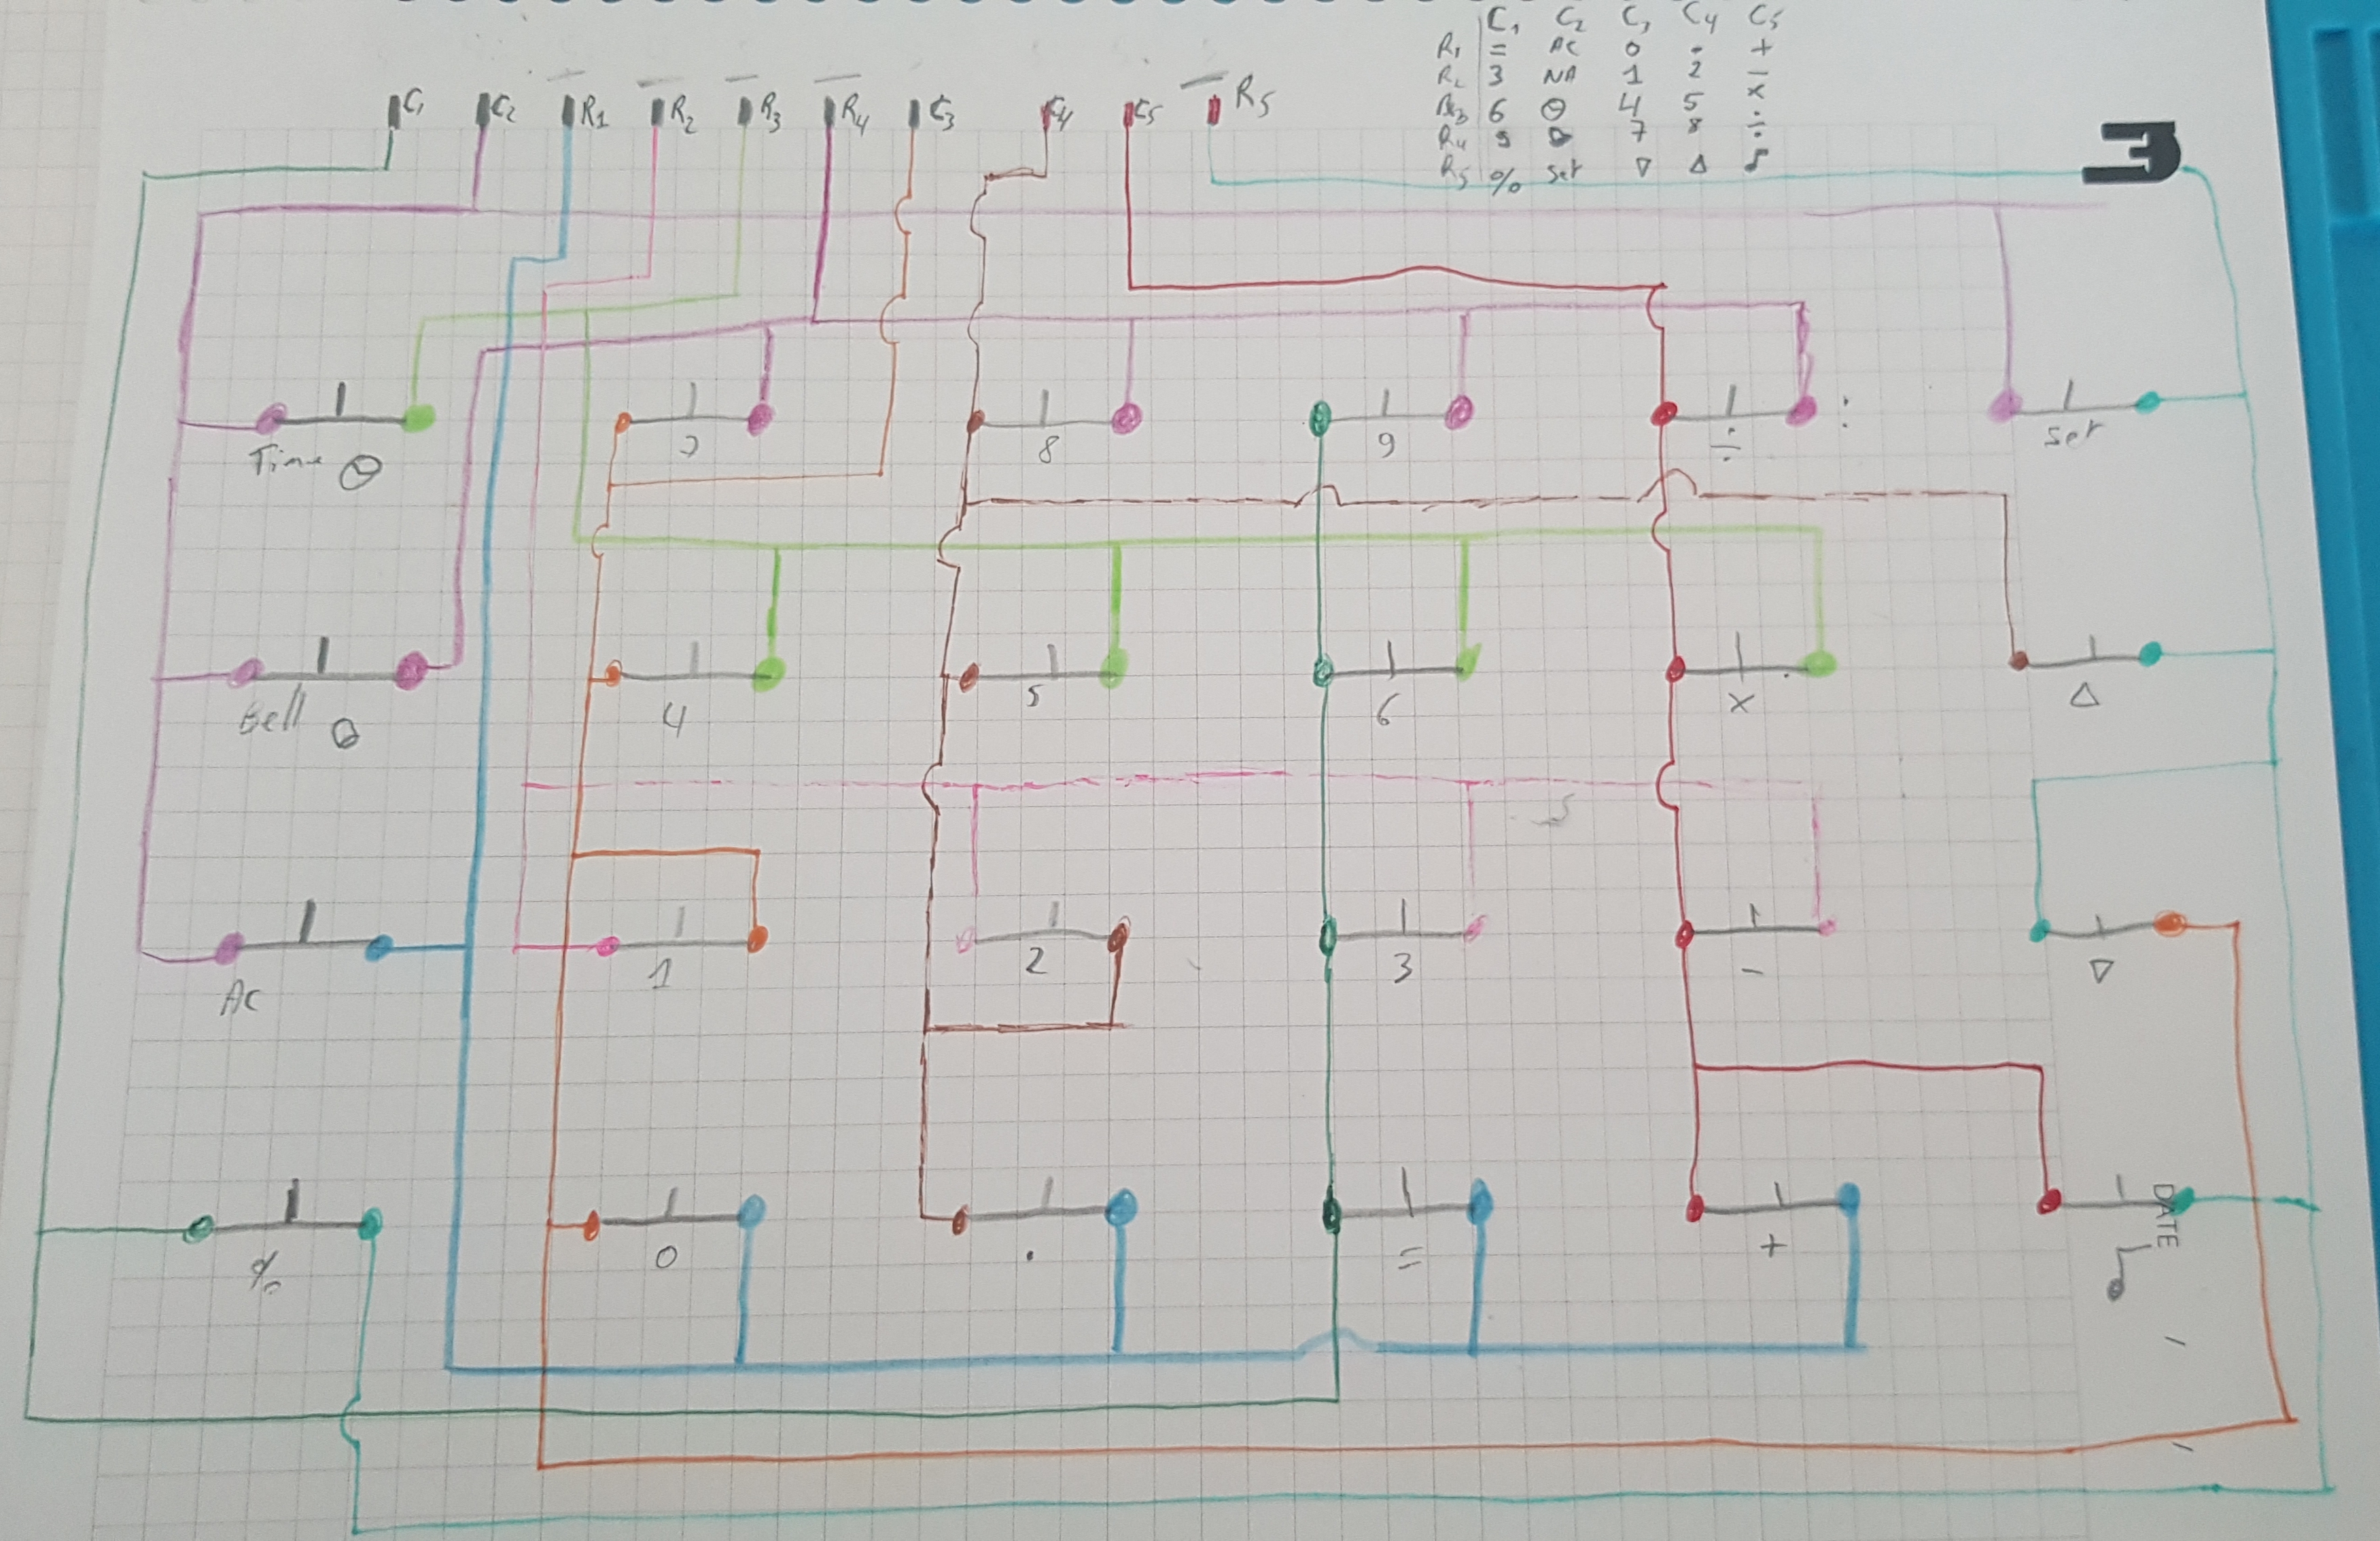 C1 C2 C3 C4 C5
R1 = AC 0 . +
R2 3 NA 1 2 -
R3 6 4 5 x
R4 9 7 8 ÷
R5 % Set ▽ △ ♪
C1 C2 R1 R2 R3 R4 C3 C4 C5 R5
Time 7 8 9 ÷ : Set
Bell 4 5 6 x △
AC 1 2 3 - ▽
% 0 . = + ♪
DATE